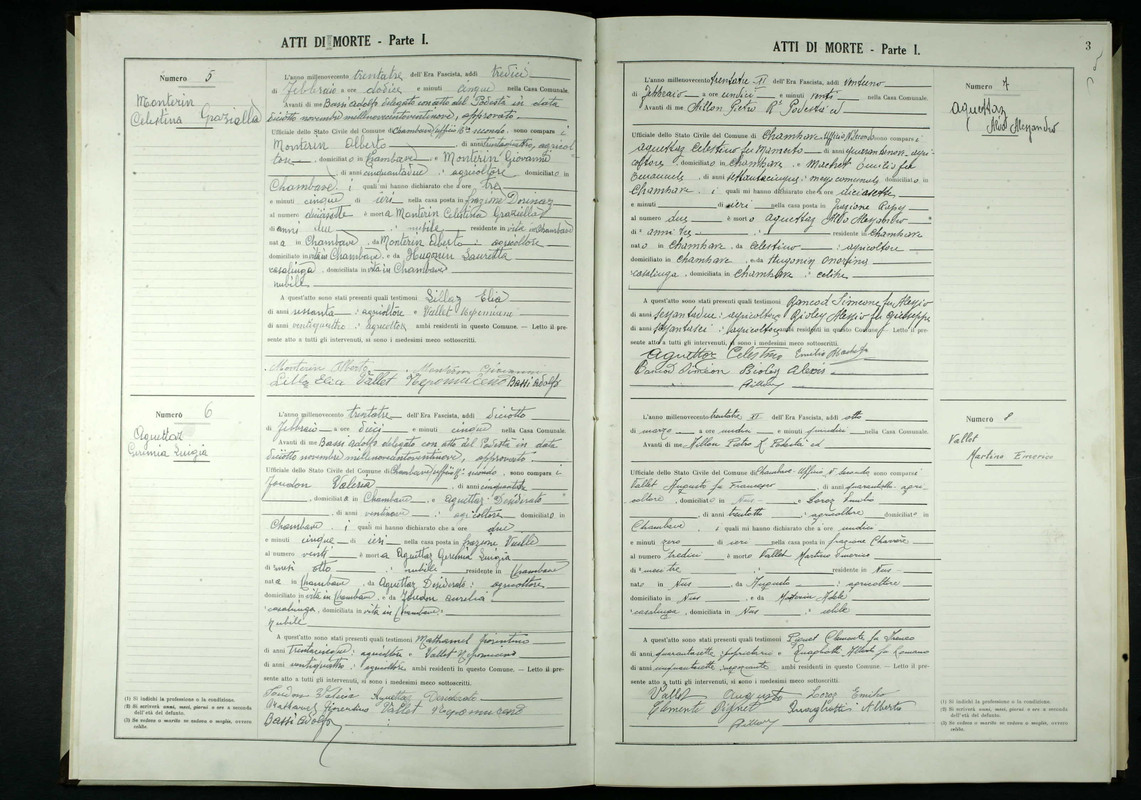 ATTI DI MORTE - Parte I.
Numero 5
Monterin
Celestina Grazialla
L'anno millenovecento trentatre dell'Era Fascista, addì tredici
di Febbraio a ore dodici e minuti cinque nella Casa Comunale.
Avanti di me Bassi Adolfo delegato con atto del Podestà in data
diciotto novembre millenovecentoventinove, approvato
Ufficiale dello Stato Civile del Comune di Chambave, sono comparsi
Monterin Alberto di anni trentaquattro, agricol
tore, domiciliato in Chambave e Monterin Giovanni
di anni cinquantanove : agricoltore domiciliato in
Chambave i quali mi hanno dichiarato che a ore tre
e minuti cinque di ieri nella casa posta in frazione
al numero diciasette è morta Monterin Celestina Graziella
di anni due : nubile residente in vita in Chambave
nata in Chambave, da Monterin Alberto : agricoltore
domiciliato in Chambave, e da Hugonin Lauretta
casalinga, domiciliata in vita in Chambave
nubile
A quest'atto sono stati presenti quali testimoni Lillaz Elia
di anni : agricoltore e Vallet Nepomuceno
di anni ventiquattro : agricoltor ambi residenti in questo Comune. — Letto il pre-
sente atto a tutti gli intervenuti, si sono i medesimi meco sottoscritti.
Monterin Alberto Monterin Giovanni
Lillaz Elia Vallet Nepomuceno Bassi Adolfo
Numero 6
Aquettaz
Girmia Luigia
L'anno millenovecento trentatre dell'Era Fascista, addì diciotto
di Febbraio a ore dieci e minuti cinque nella Casa Comunale.
Avanti di me Bassi Adolfo delegato con atto del Podestà in data
diciotto novembre millenovecentoventinove, approvato
Ufficiale dello Stato Civile del Comune di Chambave, ufficio secondo, sono comparsi
Joudon Valeria di anni cinquanta
, domiciliata in Chambave e Aquettaz Desiderato
di anni ventinove : agricoltore domiciliato in
Chambave i quali mi hanno dichiarato che a ore due
e minuti cinque di ieri nella casa posta in frazione
al numero venti è morta Aquettaz Girmia Luigia
di mesi otto : nubile residente in Chambave
nata in Chambave, da Aquettaz Desiderato : agricoltore
domiciliato in vita in Chambave, e da Joudon Aurelia
casalinga, domiciliata in vita in Chambave
Nubile
A quest'atto sono stati presenti quali testimoni Mathamel Fiorentino
di anni trentacinque : agricoltore e Vallet Nepomuceno
di anni ventiquattro : agricoltore ambi residenti in questo Comune. — Letto il pre-
sente atto a tutti gli intervenuti, si sono i medesimi meco sottoscritti.
Joudon Valeria Aquettaz Desiderato
Fiorentino Vallet Nepomuceno
Bassi Adolfo
(1) Si indichi la professione o la condizione.
(2) Si scriverà anni, mesi, giorni o ore a seconda
dell'età del defunto.
(3) Se vedovo o marito se vedova o moglie, ovvero
celibe.
ATTI DI MORTE - Parte I.
3
Numero 7
Aquettaz
Aldo Alessandro
L'anno millenovecento trentatre XI dell'Era Fascista, addì ventuno
di febbraio a ore undici e minuti venti nella Casa Comunale.
Avanti di me Pietro R° Podestà ed
Ufficiale dello Stato Civile del Comune di Chambave Ufficio N. Secondo sono comparsi
Aquettaz Celestino fu Mamerto di anni quarantanon, agri-
coltore, domiciliato in Chambave e Machet Emilio fu
Emanuele di anni settantacinque : messo comunale domiciliato in
Chambave i quali mi hanno dichiarato che a ore diciasette
e minuti di ieri nella casa posta in frazione
al numero due è morto Aquettaz Aldo Alessandro
di anni tre residente in Chambave
nato in Chambave, da Celestino : agricoltore
domiciliato in Chambave, e da Hugonin Onorina
casalinga, domiciliata in Chambave : celibe
A quest'atto sono stati presenti quali testimoni Bancod Simeone fu Alessio
di anni sessantadue : agricoltore e Bioley Alessio fu Giuseppe
di anni sessantasei : agricoltore ambi residenti in questo Comune. — Letto il pre-
sente atto a tutti gli intervenuti, si sono i medesimi meco sottoscritti.
Aquettaz Celestino Emilio
Simeon Bioley Alexis
Numero 8
Vallet
Martino Emerico
L'anno millenovecento trentatre XI dell'Era Fascista, addì otto
di marzo a ore undici e minuti quindici nella Casa Comunale.
Avanti di me Pietro R° Podestà ed
Ufficiale dello Stato Civile del Comune di Chambave Ufficio N° secondo sono comparsi
Vallet Augusto fu Francesco di anni quarantasette agri-
coltore, domiciliato in Nus e Loroz Emilio
di anni trentotto : agricoltore domiciliato in
Chambave i quali mi hanno dichiarato che a ore undici
e minuti zero di ieri nella casa posta in frazione
al numero tredici è morto Vallet Martino Emerico
di mesi tre residente in Nus
nato in Nus, da Augusto : agricoltore
domiciliato in Nus e da Adele
casalinga, domiciliata in Nus : celibe
A quest'atto sono stati presenti quali testimoni Clemente fu
di anni quarantasette e Alberto fu Romano
di anni cinquantasette ambi residenti in questo Comune. — Letto il pre-
sente atto a tutti gli intervenuti, si sono i medesimi meco sottoscritti.
Vallet Augusto Loroz Emilio
Clemente Alberto
(1) Si indichi la professione o la condizione.
(2) Si scriverà anni, mesi, giorni o ore a seconda
dell'età del defunto.
(3) Se vedovo o marito se vedova o moglie, ovvero
celibe.